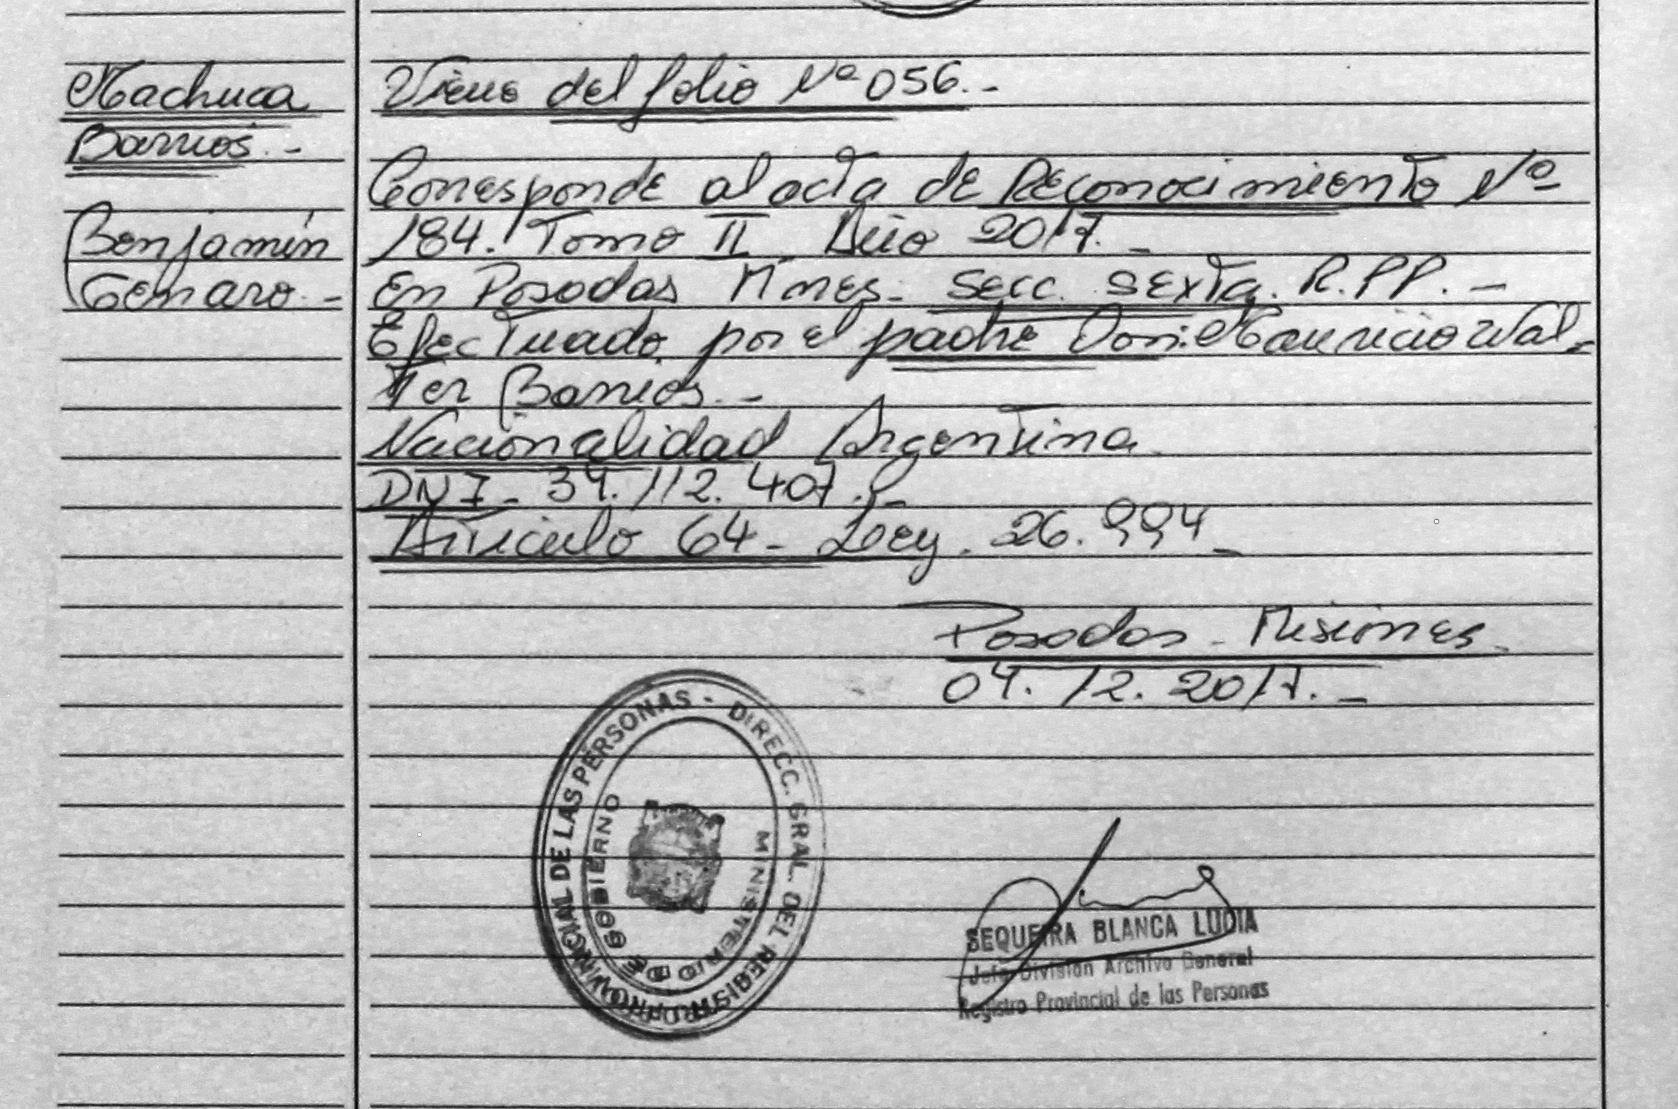 Machuca
Barrios.-
Benjamín
Genaro.-
Viene del folio Nº 056.-
Corresponde al acta de Reconocimiento Nº
184. Tomo II Año 2017.-
En Posadas Mnes- Secc. Sexta. R.PP.-
Efectuado por el padre Don: Mauricio Wal-
ter Barrios.-
Nacionalidad Argentina
DNI- 39.112.407.
Artículo 64- Ley. 26.994-
Posadas- Misiones-
04.12.2017.-
DIRECC. GRAL. DEL REGISTRO PROVINCIAL DE LAS PERSONAS -
MINISTERIO DE GOBIERNO
SEQUEIRA BLANCA LUCIA
Jefe División Archivo General
Registro Provincial de las Personas